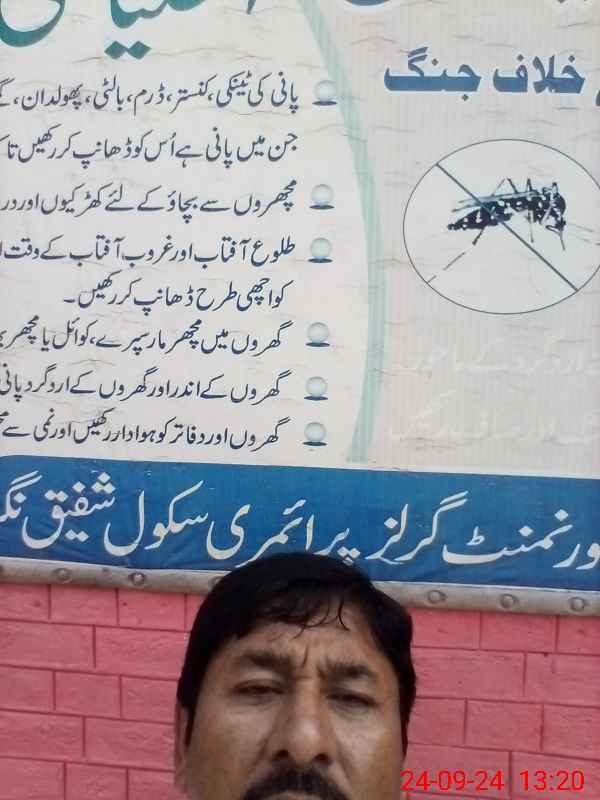 خلاف جنگ
پانی کی ٹینکی، کنستر، ڈرم، بالٹی، پھولدان،
جن میں پانی ہے اُس کو ڈھانپ کر رکھیں
مچھروں سے بچاؤ کے لئے کھڑکیوں اور
طلوع آفتاب اور غروب آفتاب کے وقت
کو اچھی طرح ڈھانپ کر رکھیں۔
گھروں میں مچھر مار سپرے، کوائل یا مچھر
گھروں کے اندر اور گھروں کے ارد گرد پانی
گھروں اور دفاتر کو ہوادار رکھیں اور نمی سے
ورنمنٹ گرلز پرائمری سکول شفیق
24-09-24 13:20